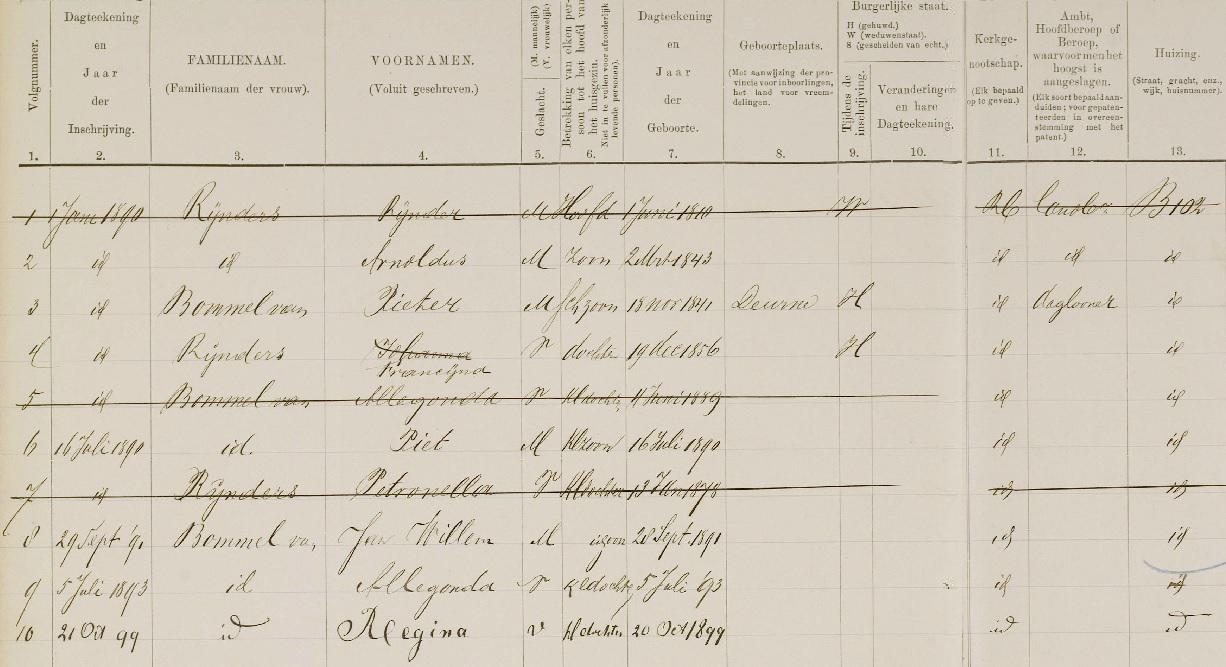 Volgnummer. Dagteekening en Jaar der Inschrijving. FAMILIENAAM. (Familienaam der vrouw). VOORNAMEN. (Voluit geschreven.) Geslacht. (M. mannelijk) (V. vrouwelijk) Betrekking van elken persoon tot het hoofd van het huisgezin. Niet in te vullen voor afzonderlijk levende personen). Dagteekening en Jaar der Geboorte. Geboorteplaats. (Met aanwijzing der provincie voor inboorlingen, het land voor vreemdelingen. Burgerlijke staat. H (gehuwd.) W (weduwenstaat). S (gescheiden van echt.) Tijdens de inschrijving. Veranderingen en hare Dagteekening. Kerkgenootschap. (Elk bepaald op te geven.) Ambt, Hoofdberoep of Beroep, waarvoor men het hoogst is aangeslagen. (Elk soort bepaald aanduiden; voor gepatenteerden in overeenstemming met het patent.) Huizing. (Straat, gracht, enz., wijk, huisnummer).
1. 2. 3. 4. 5. 6. 7. 8. 9. 10. 11. 12. 13.
1 1 Janr 1890 Rijnders Rijnder M Hoofd 1 Juni 1810 W RC B102
2 id id Arnoldus M Zoon 2 Mrt 1843 id id id
3 id Bommel van Pieter M Schzoon 18 nov 1841 Deurne H id dagloner id
4 id Rijnders Johanna V dochter 19 dec 1856 H id id
Francijna
5 id Bommel van Allegonda V Kldochtr 4 Juni 1889 id id
6 16 Juli 1890 id. Piet M Klzoon 16 Juli 1890 id id
7 id Rijnders Petronella V Kldochter 13 Jan 1878 id id
8 29 Sept '91 Bommel van Jan Willem M zoon 28 Sept. 1891 id id
9 5 Juli 1893 id Allegonda V Kldochtr 5 Juli '93 id id
10 21 Oct 99 id Regina V Kldochtr 20 Oct 1899 id id